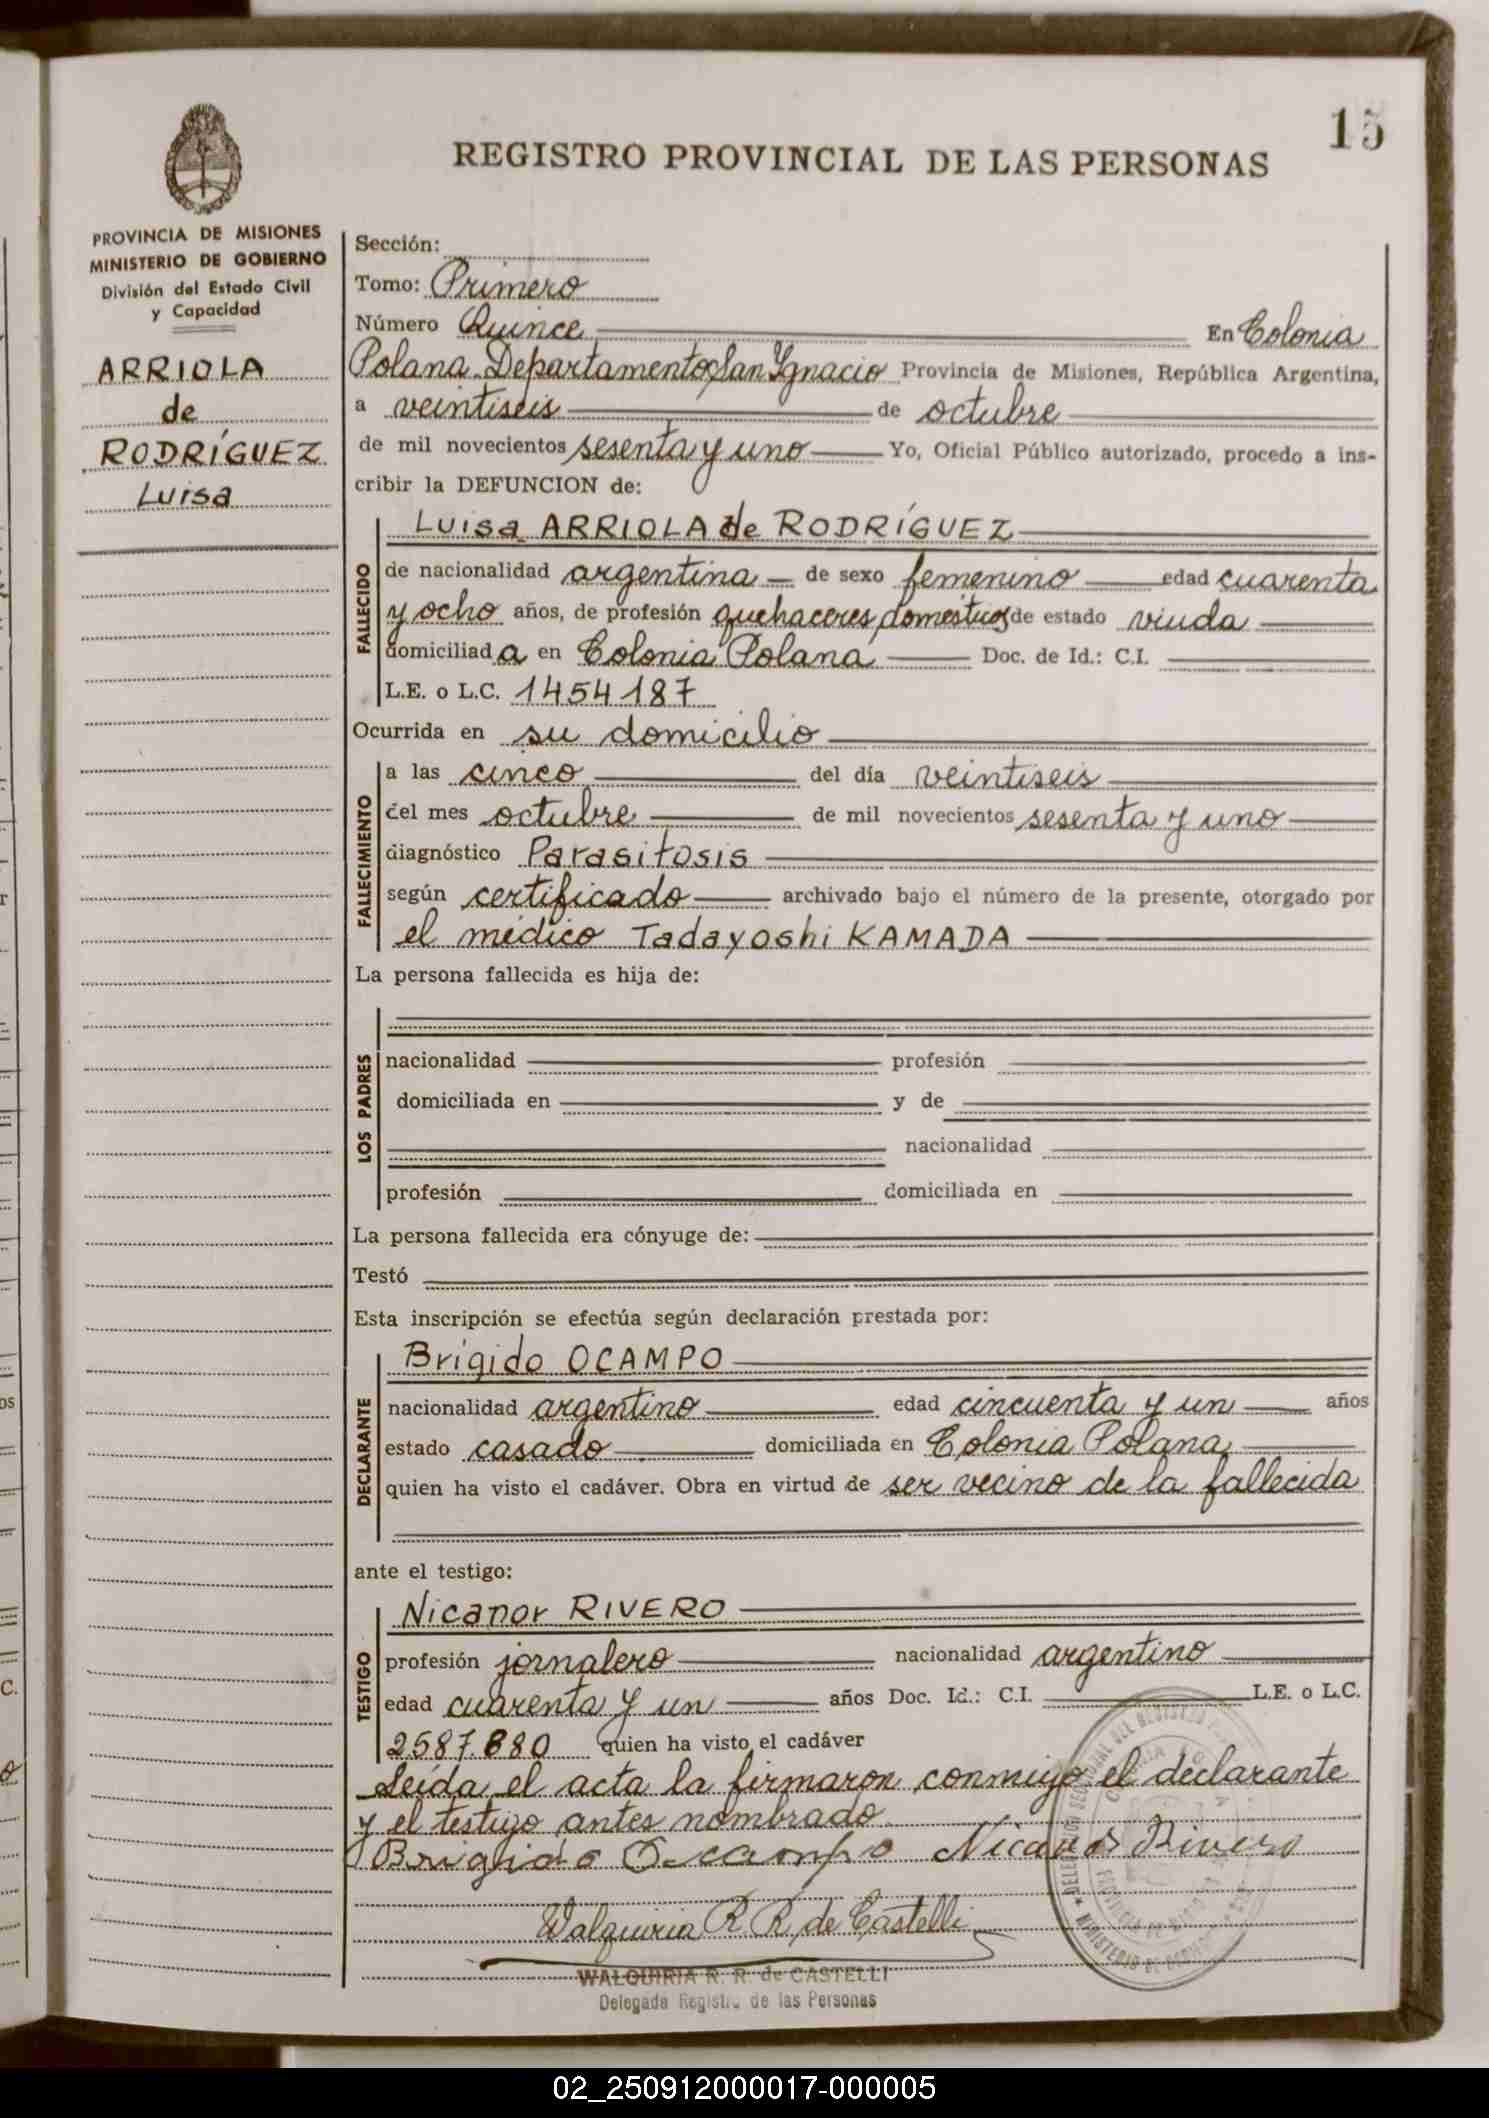 15
REGISTRO PROVINCIAL DE LAS PERSONAS
PROVINCIA DE MISIONES
MINISTERIO DE GOBIERNO
División del Estado Civil
y Capacidad
ARRIOLA
de
RODRÍGUEZ
Luisa
Sección:
Tomo: Primero
Número Quince En Colonia
Polana Departamento San Ignacio Provincia de Misiones, República Argentina,
a veintiseis de octubre
de mil novecientos sesenta y uno Yo, Oficial Público autorizado, procedo a ins-
cribir la DEFUNCION de:
FALLECIDO
Luisa ARRIOLA de RODRÍGUEZ
de nacionalidad argentina de sexo femenino edad cuarenta
y ocho años, de profesión quehaceres domesticos de estado viuda
domiciliada en Colonia Polana Doc. de Id.: C.I.
L.E. o L.C. 1454187
Ocurrida en su domicilio
FALLECIMIENTO
a las cinco del día veintiseis
del mes octubre de mil novecientos sesenta y uno
diagnóstico Parasitosis
según certificado archivado bajo el número de la presente, otorgado por
el médico Tadayoshi KAMADA
La persona fallecida es hija de:
LOS PADRES
nacionalidad profesión
domiciliada en y de
nacionalidad
profesión domiciliada en
La persona fallecida era cónyuge de:
Testó
Esta inscripción se efectúa según declaración prestada por:
DECLARANTE
Brígido OCAMPO
nacionalidad argentino edad cincuenta y un años
estado casado domiciliada en Colonia Polana
quien ha visto el cadáver. Obra en virtud de ser vecino de la fallecida
ante el testigo:
TESTIGO
Nicanor RIVERO
profesión jornalero nacionalidad argentino
edad cuarenta y un años Doc. Id.: C.I. L.E. o L.C.
2587.880 quien ha visto el cadáver
Leída el acta la firmaron conmigo el declarante
y el testigo antes nombrado
Brigido Ocampo Nicanor Rivero
Walquiria R. R. de Castelli
WALQUIRIA R. R. de CASTELLI
Delegada Registro de las Personas
02_250912000017-000005